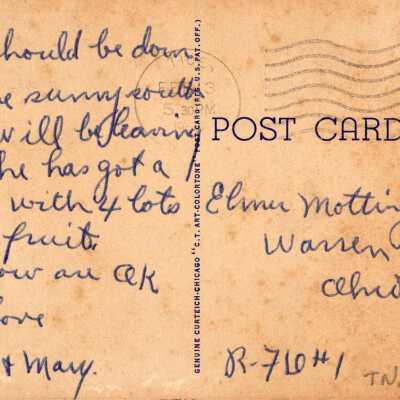 should be down
sunny south
will be leaving
he has got a
with 4 lots
fruit
are OK
love
& Mary.
5 30 PM
GENUINE CURTEICH-CHICAGO "C.T. ART-COLORTONE" POST CARD (REG. U.S. PAT. OFF.)
POST CARD
Elmer
Warren
R-7 #1